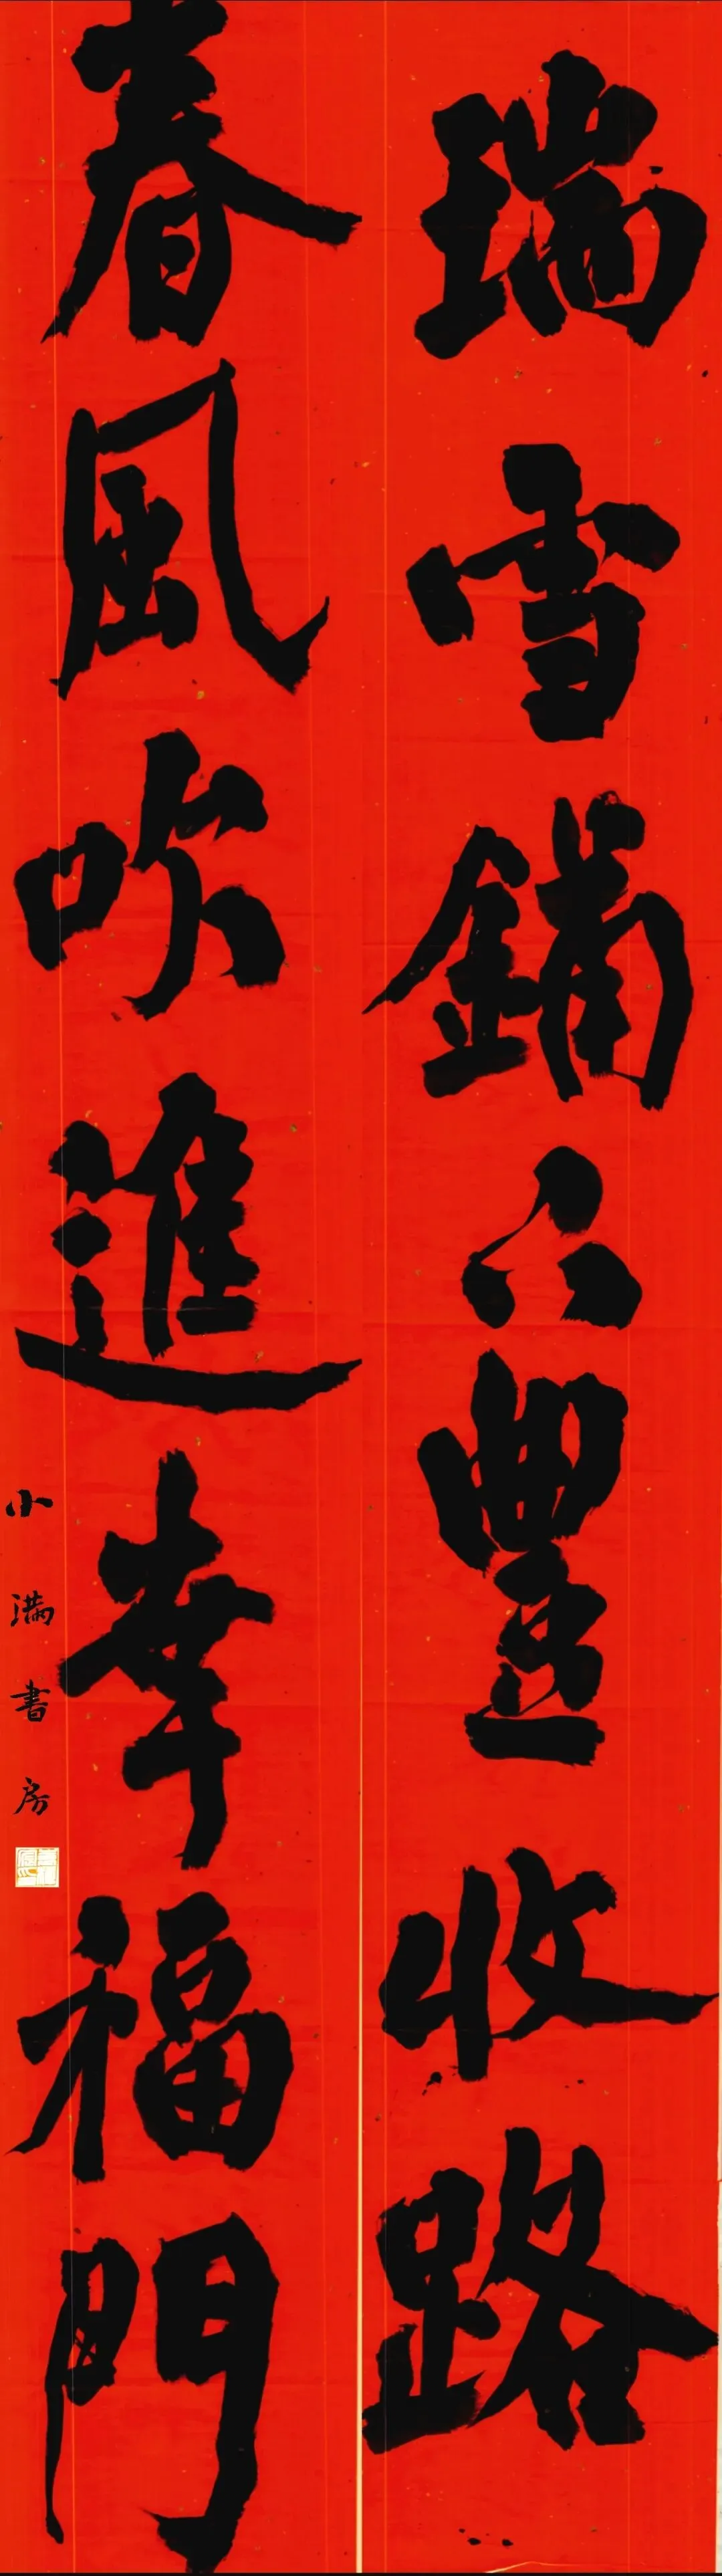 瑞雪鋪下豐收路
春風吹進幸福門
小满書房